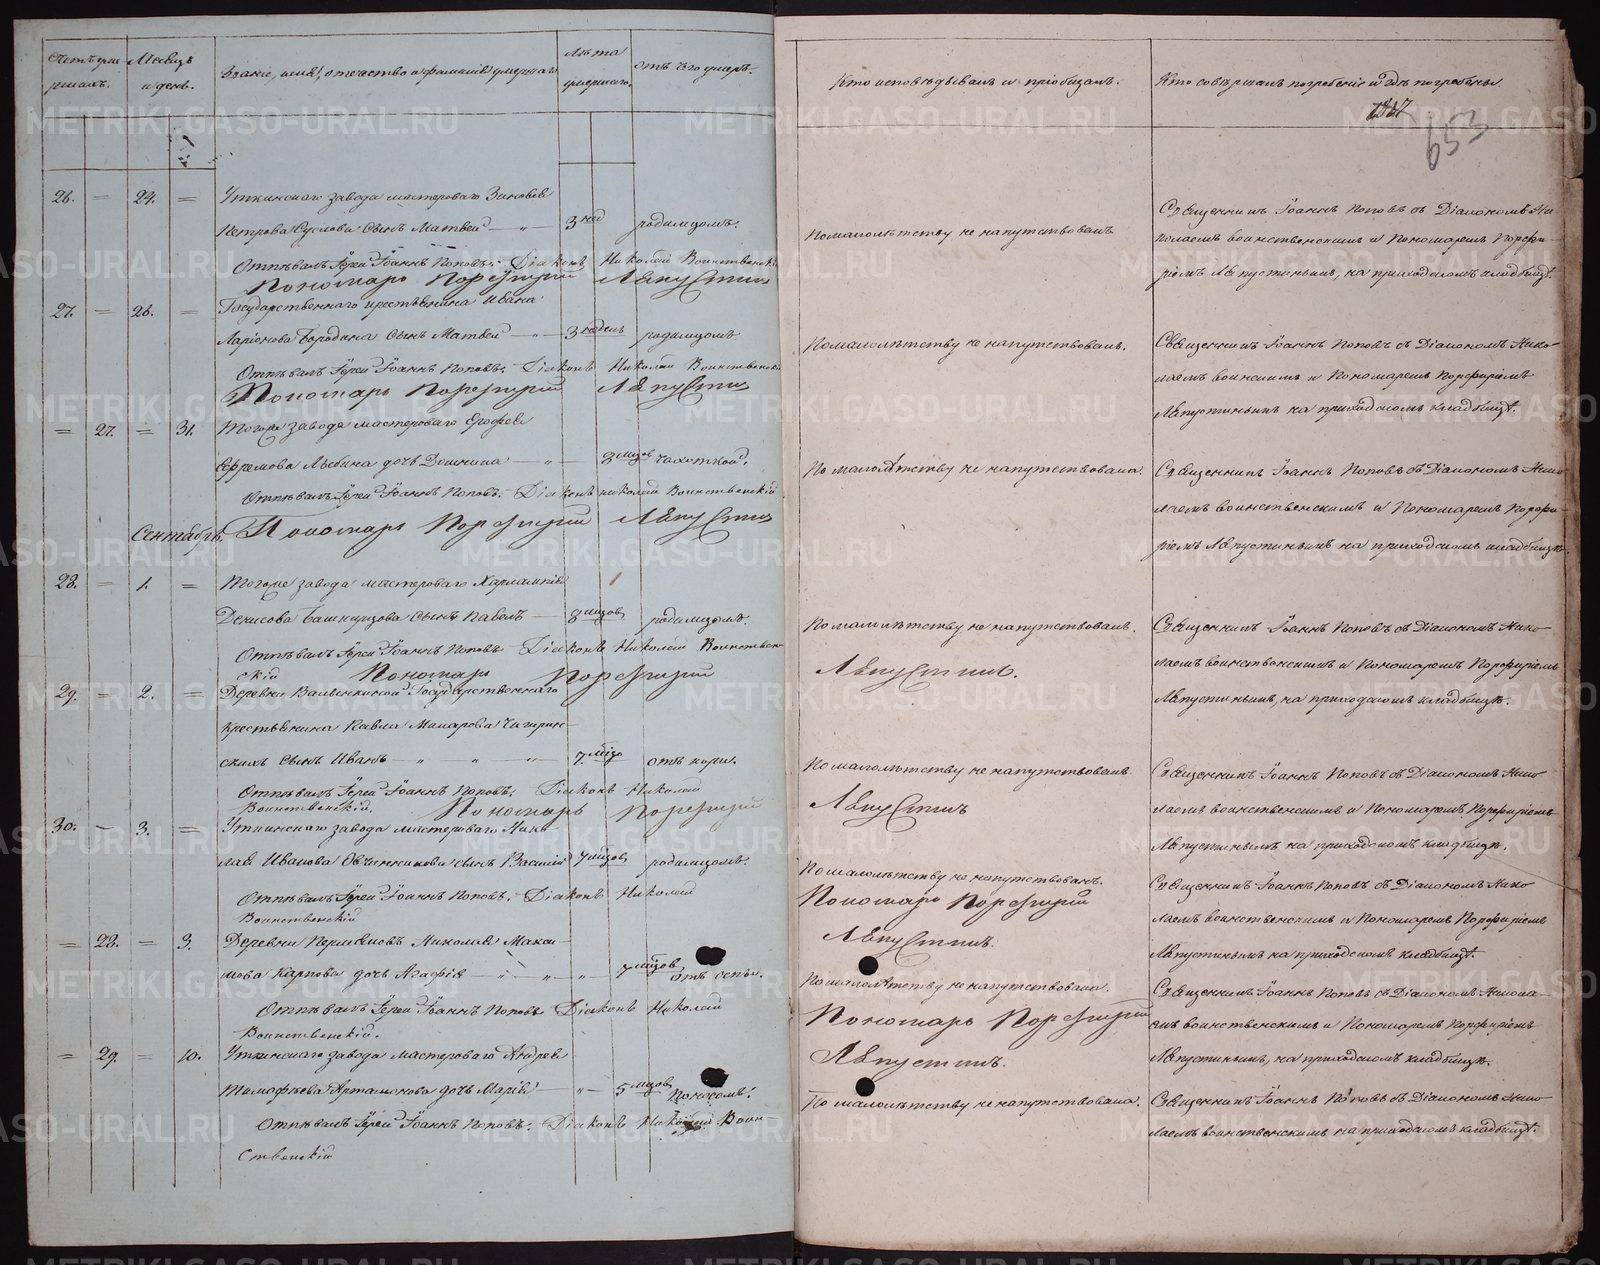 Счетъ умершихъ.
Мѣсяцъ и день.
Званіе, имя, отчество и фамилія умершаго
Лѣта умершаго.
отъ чего умеръ.
26. — 24. — Уткинскаго завода мастероваго Зиновья
Петрова Суслова сынъ Матвей — 3 нед родимцомъ.
Отпѣвалъ Іерей Іоаннъ Поповъ. Діаконъ Николай Воинственскій
Пономарь Порфирій Лѣпустинъ
27. — 26. — Государственнаго крестьянина Ивана
Ларіонова Бородина сынъ Матвей — 3 недель родимцомъ
Отпѣвалъ Іерей Іоаннъ Поповъ. Діаконъ Николай Воинственск
Пономарь Порфирій
— 27. — 31. Тогоже завода мастероваго Ерофея
Ефремова дочь Домнина — 8 мцовъ чахоткой.
Отпѣвалъ Іерей Іоаннъ Поповъ. Діаконъ Николай Воинственскій
Сентябрь. Пономарь Порфирій
28. — 1. — Тогоже завода мастероваго Харлампія
Денисова Башкирцова сынъ Павелъ — 8 мцовъ родимцомъ.
Отпѣвалъ Іерей Іоаннъ Поповъ Діаконъ Николай Воинствен
скій Пономарь Порфирій
29. — 2. — Деревни Государственнаго
крестьянина Павла Макарова Чигрин
скихъ сынъ Иванъ — 7 отъ кори.
Отпѣвалъ Іерей Іоаннъ Поповъ. Діаконъ Николай
Воинственскій. Пономарь Порфирій
30. — 3. — Уткинскаго завода мастероваго Нико
лая Иванова Овчинникова сынъ Василій 7 мцовъ родимцомъ.
Отпѣвалъ Іерей Іоаннъ Поповъ. Діаконъ Николай
Воинственскій
— 28. — 3. Деревни Николая Макси
мова Карпова дочь Агафія — мцовъ отъ оспы.
Отпѣвалъ Іерей Іоаннъ Поповъ Діаконъ Николай
Воинственскій.
— 29. — 10. Уткинскаго завода мастероваго Андрея
Тимофѣева Артамонова дочь Марія — 5 мцовъ поносомъ.
Отпѣвалъ Іерей Іоаннъ Поповъ. Діаконъ Николай Воин
ственскій
Кто исповѣдывалъ и пріобщалъ.
Кто совершалъ погребеніе и гдѣ погребены.
653
По малолѣтству не напутствованъ
Священникъ Іоаннъ Поповъ съ Діакономъ Ни
колаемъ Воинственскимъ и Пономаремъ Порфи
ріемъ на приходскомъ кладбищѣ.
По малолѣтству не напутствованъ.
Священникъ Іоаннъ Поповъ съ Діакономъ Нико
лаемъ и Пономаремъ Порфиріемъ
на приходскомъ кладбищѣ.
По малолѣтству не напутствована.
Священникъ Іоаннъ Поповъ съ Діакономъ Нико
лаемъ Воинственскимъ и Пономаремъ Порфи
ріемъ на приходскомъ кладбищѣ.
По малолѣтству не напутствованъ.
Священникъ Іоаннъ Поповъ съ Діакономъ Нико
лаемъ Воинственскимъ и Пономаремъ Порфиріемъ
на приходскомъ кладбищѣ.
По малолѣтству не напутствованъ
Священникъ Іоаннъ Поповъ съ Діакономъ Нико
лаемъ Воинственскимъ и Пономаремъ Порфиріемъ
на приходскомъ кладбищѣ.
По малолѣтству не напутствованъ.
Пономарь Порфирій
Священникъ Іоаннъ Поповъ съ Діакономъ Нико
лаемъ Воинственскимъ и Пономаремъ Порфиріемъ
на приходскомъ кладбищѣ.
По малолѣтству не напутствована.
Пономарь Порфирій
Священникъ Іоаннъ Поповъ съ Діакономъ Никола
емъ Воинственскимъ и Пономаремъ Порфиріемъ
на приходскомъ кладбищѣ.
По малолѣтству не напутствована.
Священникъ Іоаннъ Поповъ съ Діакономъ Нико
лаемъ Воинственскимъ на приходскомъ кладбищѣ.
METRIKI.GASO-URAL.RU